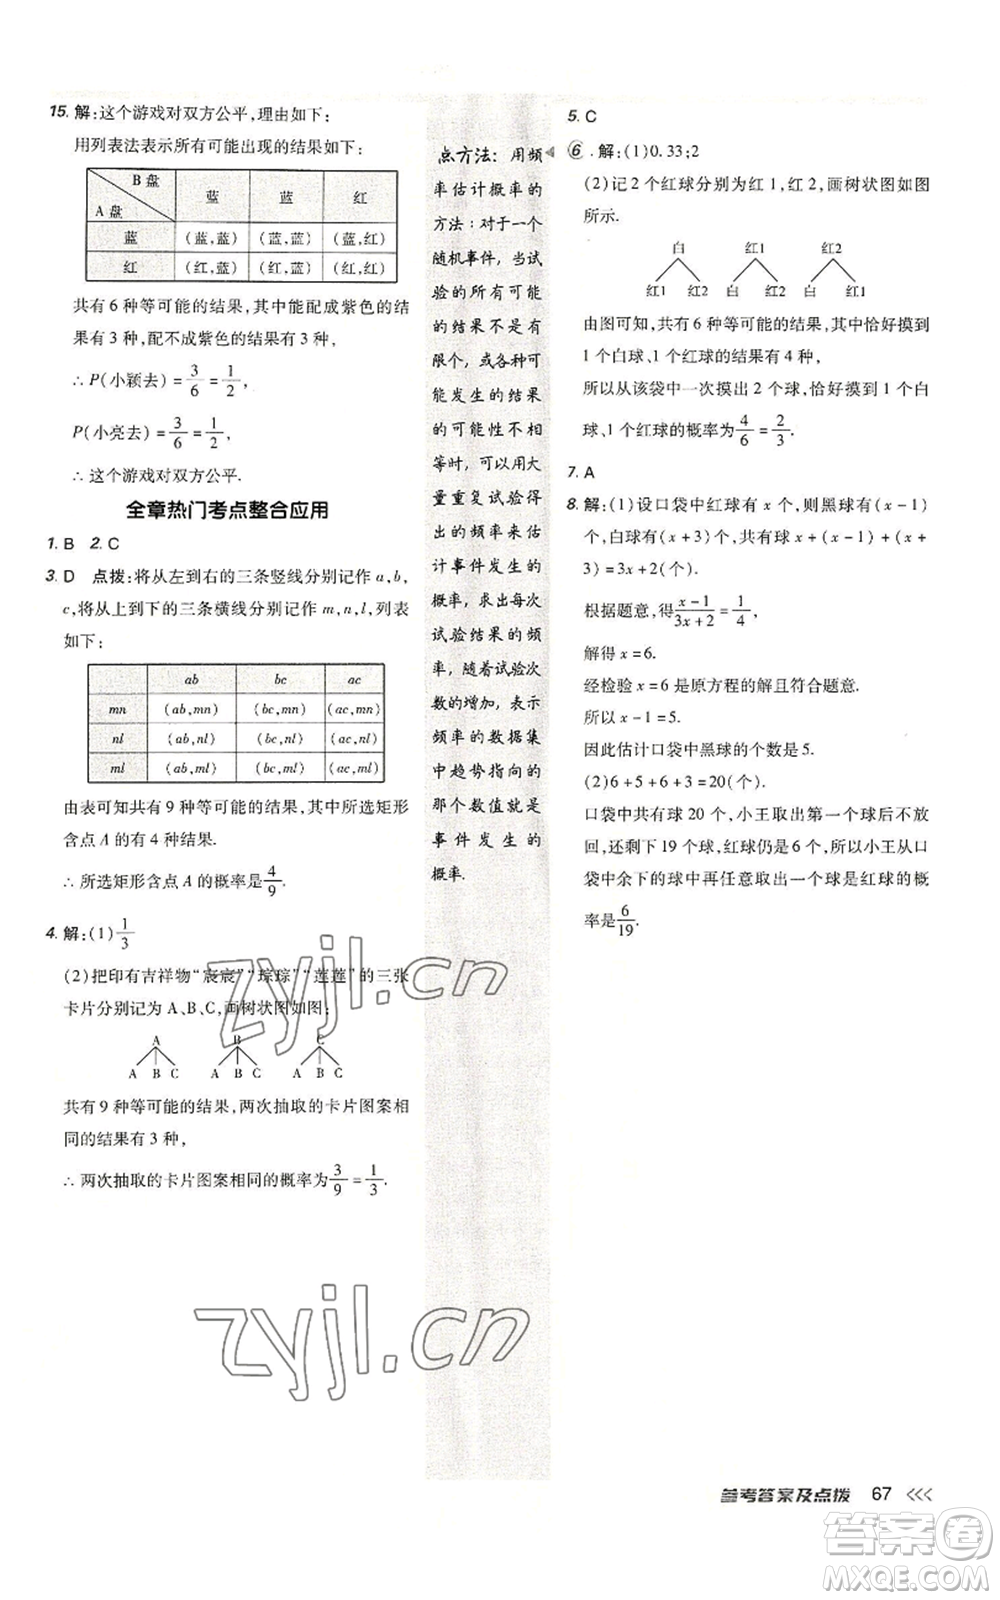 15. 解:这个游戏对双方公平,理由如下:
用列表法表示所有可能出现的结果如下:
B 盘 蓝 蓝 红
A 盘
蓝 (蓝,蓝) (蓝,蓝) (蓝,红)
红 (红,蓝) (红,蓝) (红,红)
共有 6 种等可能的结果,其中能配成紫色的
结果有 3 种,配不成紫色的结果有 3 种,
∴ P(小颖去) = 3/6 = 1/2,
P(小亮去) = 3/6 = 1/2,
∴ 这个游戏对双方公平.
全章热门考点整合应用
1. B 2. C
3. D 点拨:将从左到右的三条竖线分别记作 a,b,
c,将从上到下的三条横线分别记作 m,n,l,列表
如下:
ab bc ac
mn (ab,mn) (bc,mn) (ac,mn)
nl (ab,nl) (bc,nl) (ac,nl)
ml (ab,ml) (bc,ml) (ac,ml)
由表可知共有 9 种等可能的结果,其中所选矩形
含点 A 的有 4 种结果.
∴ 所选矩形含点 A 的概率是 4/9.
4. 解:(1) 1/3
(2)把印有吉祥物“宸宸”“琮琮”“莲莲”的三张
卡片分别记为 A、B、C,画树状图如图:
A B C
A B C A B C A B C
共有 9 种等可能的结果,两次抽取的卡片图案相
同的结果有 3 种,
∴ 两次抽取的卡片图案相同的概率为 3/9 = 1/3.
点方法:用频
率估计概率的
方法:对于一个
随机事件,当试
验的所有可能
的结果不是有
限个,或各种可
能发生的结果
的可能性不相
等时,可以用大
量重复试验得
出的频率来估
计事件发生的
概率,求出每次
试验结果的频
率,随着试验次
数的增加,表示
频率的数据集
中趋势指向的
那个数值就是
事件发生的
概率.
5. C
6. 解:(1)0.33;2
(2)记 2 个红球分别为红 1,红 2,画树状图如图
所示.
白 红1 红2
红1 红2 白 红2 白 红1
由图可知,共有 6 种等可能的结果,其中恰好摸到
1 个白球、1 个红球的结果有 4 种,
所以从该袋中一次摸出 2 个球,恰好摸到 1 个白
球、1 个红球的概率为 4/6 = 2/3.
7. A
8. 解:(1)设口袋中红球有 x 个,则黑球有(x－1)
个,白球有(x＋3)个,共有球 x＋(x－1)＋(x＋
3)＝3x＋2(个).
根据题意,得 (x－1)/(3x＋2) = 1/4,
解得 x = 6.
经检验 x = 6 是原方程的解且符合题意.
所以 x－1 = 5.
因此估计口袋中黑球的个数是 5.
(2)6＋5＋6＋3＝20(个).
口袋中共有球 20 个,小王取出第一个球后不放
回,还剩下 19 个球,红球仍是 6 个,所以小王从口
袋中余下的球中再任意取出一个球是红球的概
率是 6/19.
zyjl.cn
zyjl.cn
参考答案及点拨 67
答案卷
MXQE.COM